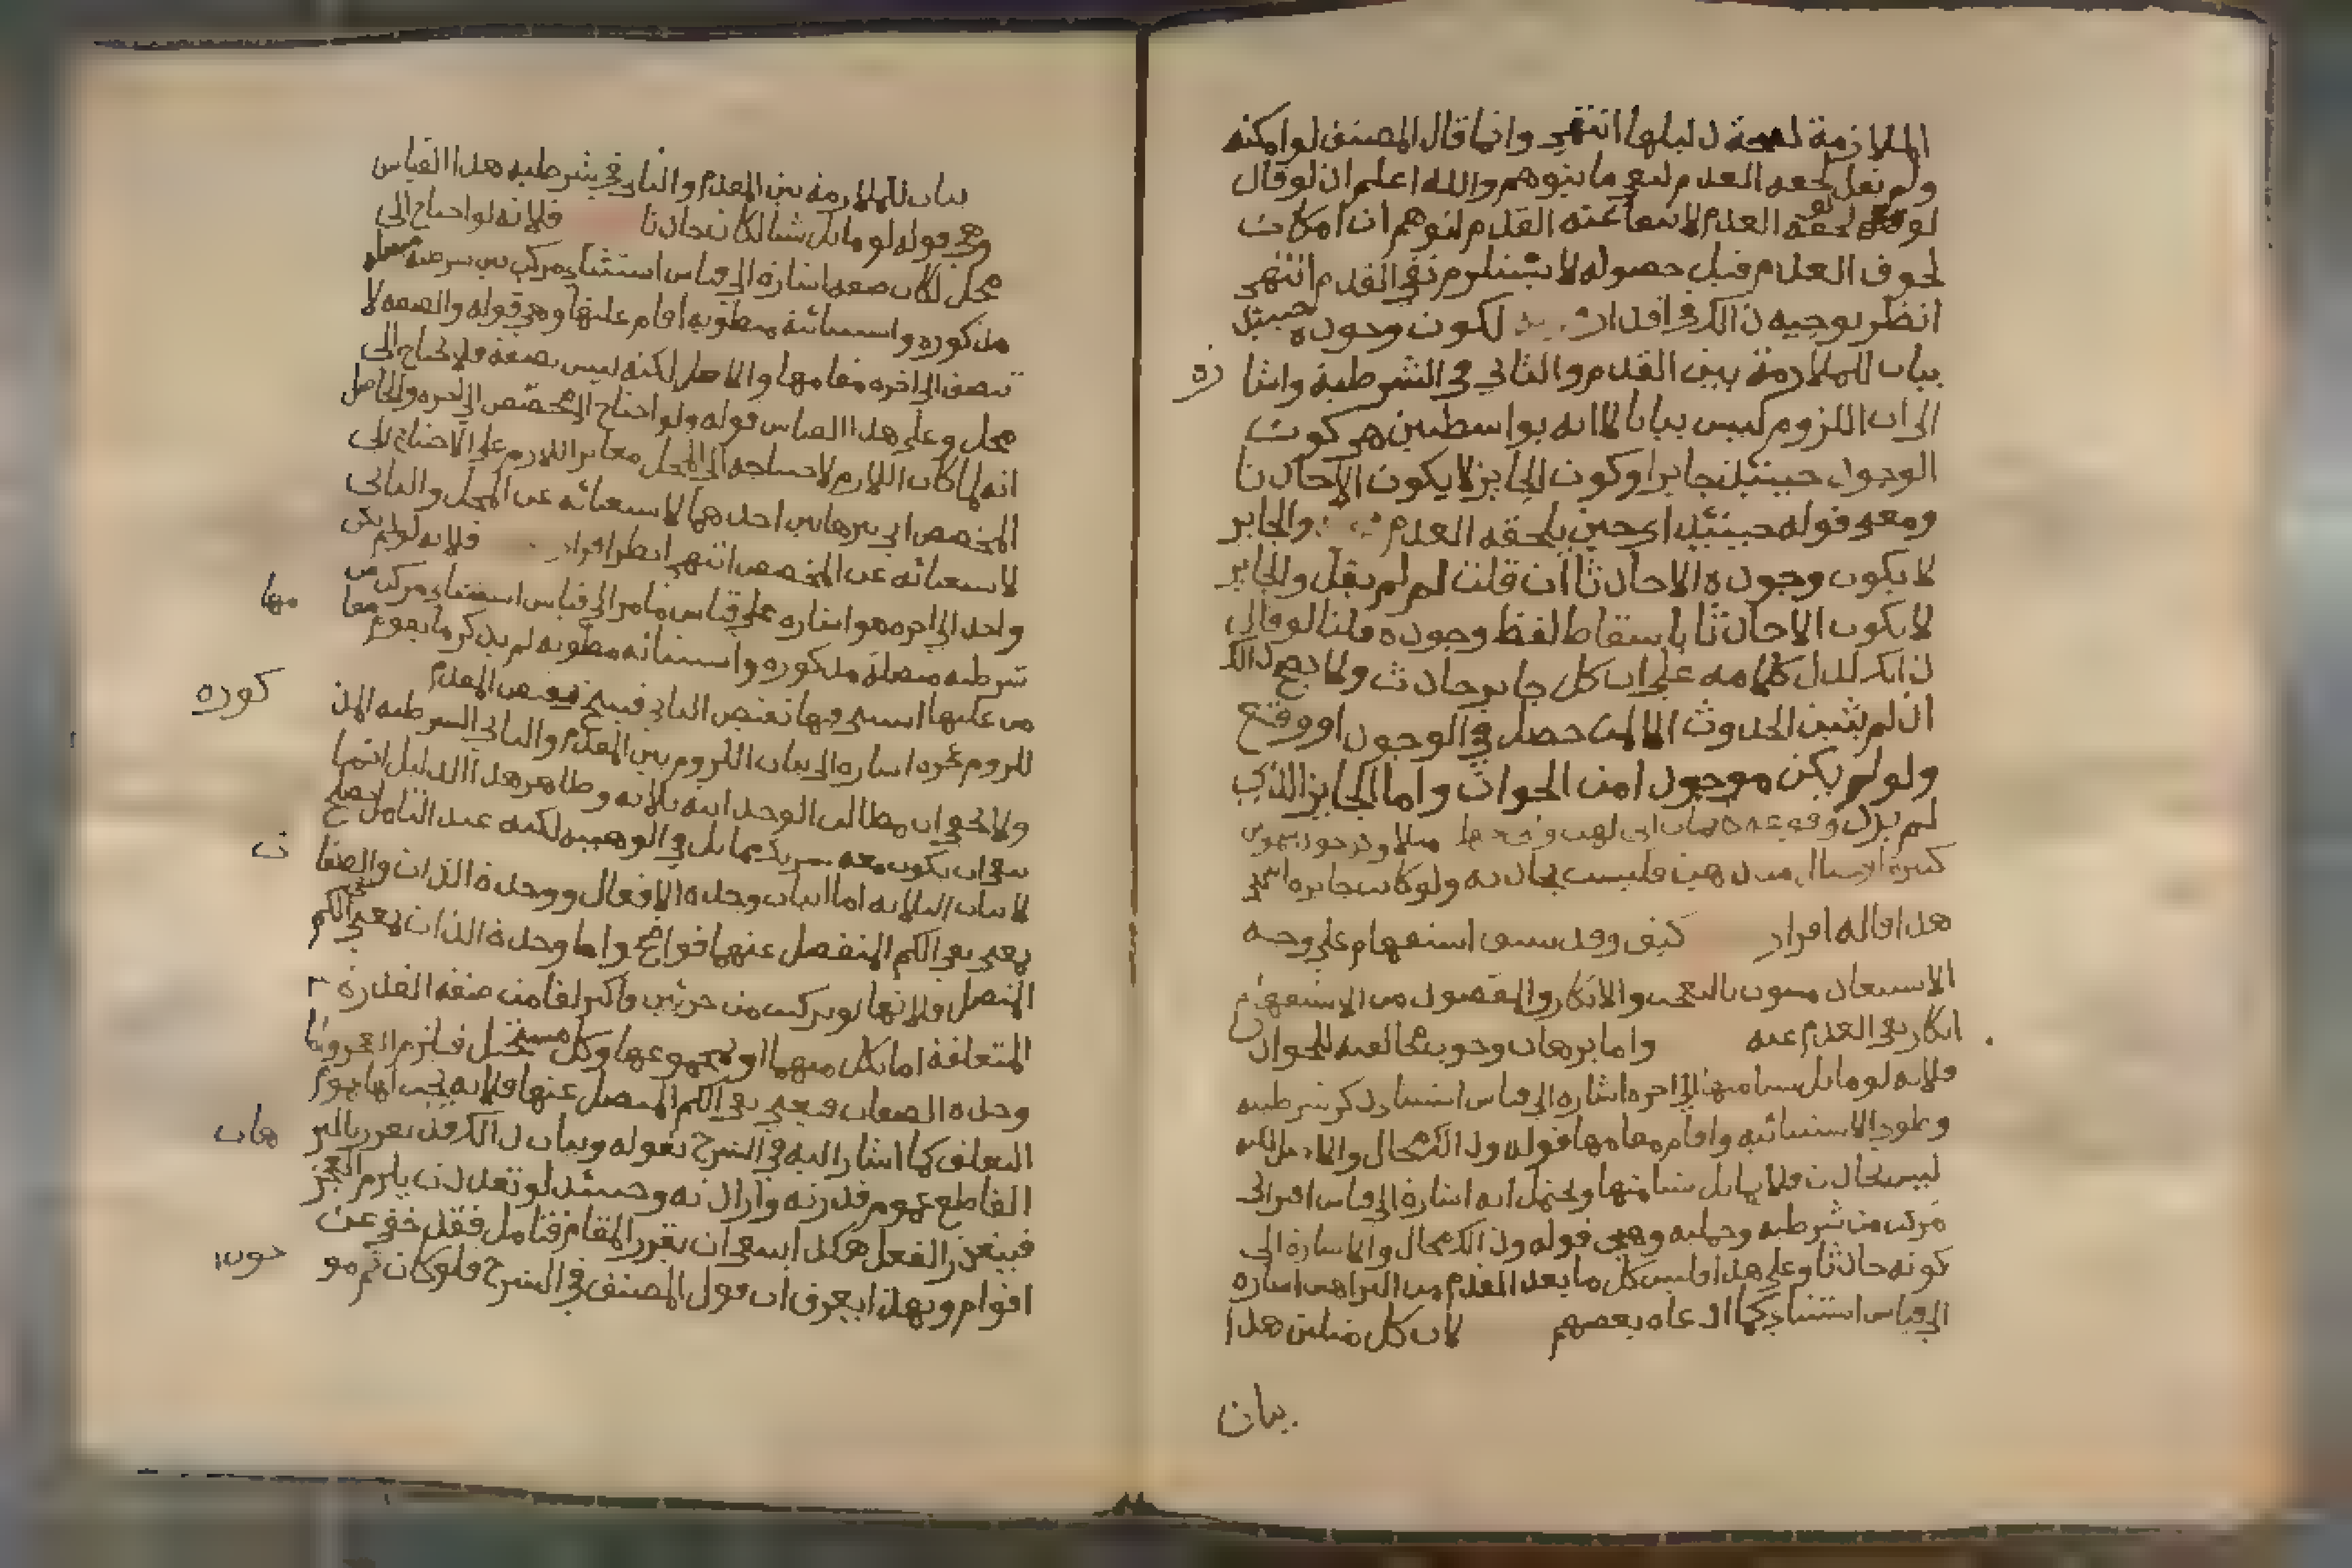 الملازمة لصحة دليلها انتهى وانما قال المصنف لو امكنه
ولم يقل لحقه العدم لدفع ما يتوهم والله اعلم اذ لو قال
لو لحقه العدم لانتفا عنه القدم لتوهم ان امكان
لحوق العدم قبل حصوله لا يستلزم نفي القدم انتهى
انظر توجيه ذالك في اقدار لكون وجوده حينئذ
بيان للملازمة بين المقدم والتالي في الشرطية واشا رة
الى ان اللزوم ليس بيانا لا انه بواسطتين هي كون
الوجود حينئذ جايزا وكون الجايز لا يكون الا حادثا
ومعنى قوله حينئذ اي حين يلحقه العدم والجايز
لا يكون وجوده الا حادثا ان قلت لم لم يقل والجايز
لا يكون الا حادثا باسقاط لفظ وجوده قلنا لو قال
ذالك لدل كلامه على ان كل جايز حادث ولا يصح ذالك
اذ لم يثبت الحدوث الا لمن حصل في الوجود او وقع
ولو لم يكن موجودا من الحوادث واما الجايز الذي
لم يرد وقوعه كايمان ابي لهب
كثيرة فليست بحادثه ولو كانت جايزه انتهى
هذا قاله اقرار كيف وقد سبق استفهام على وجه
الاستبعاد مشوب بالتعجب والانكار والمقصود من الاستفهام
انكار نفي العدم عنه واما برهان وجوب مخالفته للحوادث
فلانه لو ماثل شيا منها الى اخره اشارة الى قياس استثنائي ذكر شرطيته
وطوى الاستثنائيه واقام مقامها قوله وذالك محال والاصل لكنه
ليس بحادث فلا يماثل شيا منها ويحتمل انه اشارة الى قياس اقتراني
مركب من شرطيه وحمليه وهي قوله وذالك محال والاشارة الى
كونه حادثا وعلى هذا فليس كل ما بعد المقدم من البراهين اشاره
الى قياس استثنائي كما ادعاه بعضهم لان كل مثلين هذا
بيان
بيان للملازمة بين المقدم والتالي في شرطية هذا القياس
وهي قوله لو ماثل شيا لكان حادثا فلانه لو احتاج الى
محل لكان صفه اشارة الى قياس استثنائي مركب من شرطية متصله
مذكوره واستثنائية مطوية اقام عليها وهي قوله والصفه لا
تتصف الى اخره مقامها والاصل لكنه ليس بصفة فلا يحتاج الى
محل وعلى هذا القياس قوله ولو احتاج الى مخصص الى اخره والحاصل
انه لما كان اللازم لاحتياجه الى المحل مغايرا للازم على الاحتياج الى
المخصص اتى ببرهانين احدهما لاستغنائه عن المحل والثاني
لاستغنائه عن المخصص انتهى انظر اقرار فلانه لو لم يكن
واحدا الى اخره هو اشاره على قياس ما مر الى قياس استثنائي مركب من
شرطيه متصلة مذكوره واستثنائيه مطويه لم يذكر ما يقوم مقا مها
من عكسها استثنى فيها نقيض التالي فينتج نقيض المقدم
للزوم عجزه اشاره الى بيان اللزوم بين المقدم والتالي في الشرطيه المذ كوره
ولا يخفى ان مطالب الوحدانيه ثلاثه وظاهر هذا الدليل انما
ينفي ان يكون معه شريك مماثل في الوهيته لكنه عند التامل يصلح
لاثبات الثلاثه اما اثبات وحدة الافعال ووحدة الذات والصفا ت
بمعنى نفي الكم المنفصل عنهما فواضح واما وحدة الذات بمعنى نفي الكم
المتصل فلانها لو تركبت من جزئين فاكثر لقامت صفة القدرة
المتعلقة اما بكل منهما او بمجموعها وكل مستحيل فيلزم العجز واما
وحدة الصفات بمعنى نفي الكم المتصل عنها فلانه يجب لها عموم
التعلق كما اشار اليه في الشرح بقوله وبيان ذالك قد تقرر بالبر هان
القاطع عموم قدرته وارادته وحينئذ لو تعددت يلزم العجز
فيتعذر الفعل هكذا ينبغي ان يقرر المقام فتامل فقد خفي عن
اقوام وبهذا يعرف ان قول المصنف في الشرح فلو كان ثم مو جود